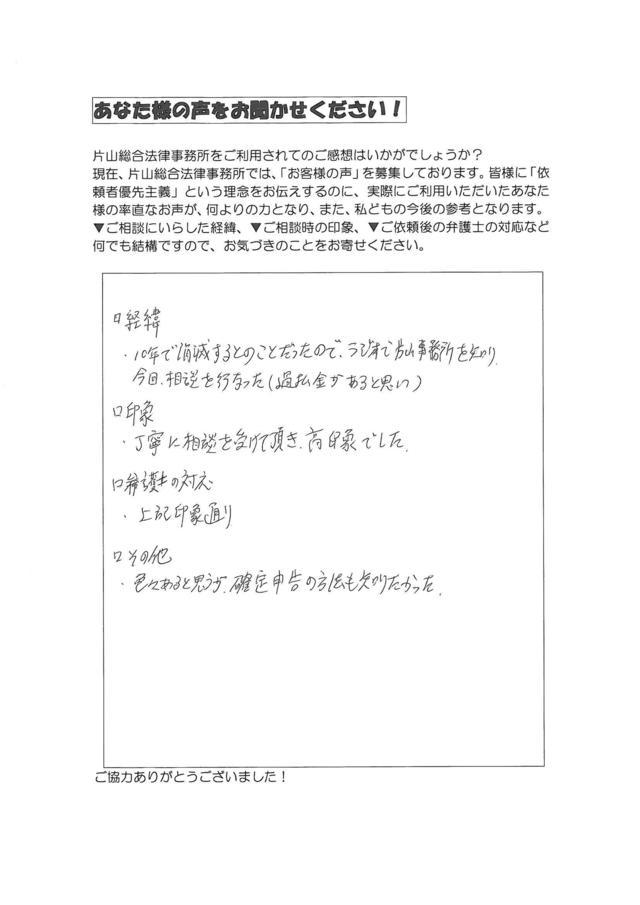 あなた様の声をお聞かせください！
片山総合法律事務所をご利用されてのご感想はいかがでしょうか？
現在、片山総合法律事務所では、「お客様の声」を募集しております。皆様に「依
頼者優先主義」という理念をお伝えするのに、実際にご利用いただいたあなた
様の率直なお声が、何よりの力となり、また、私どもの今後の参考となります。
▼ご相談にいらした経緯、▼ご相談時の印象、▼ご依頼後の弁護士の対応など
何でも結構ですので、お気づきのことをお寄せください。
□経緯
・10年で消滅するとのことだったので、ラジオで片山事務所を知り、
今回、相談を行なった（過払金があると思い）
□印象
・丁寧に相談を受けて頂き、高印象でした。
□弁護士の対応
・上記印象通り
□その他
・色々あると思うが、確定申告の方法も知りたかった。
ご協力ありがとうございました！